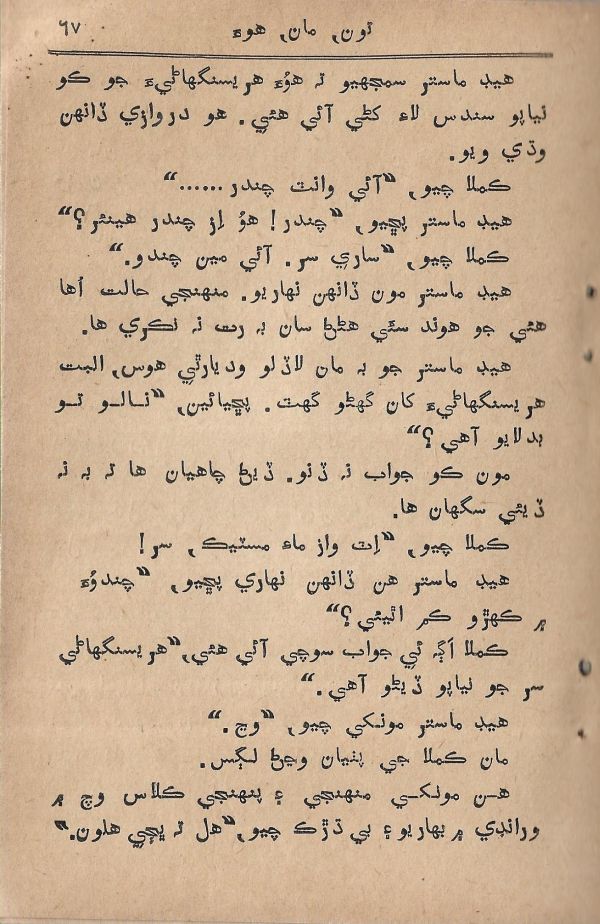 تون، مان، هوءَ ٦٧
هيڊ ماستر سمجهيو ته هوُءَ هريسنگهاڻيءَ جو ڪو
نياپو سندس لاءِ کڻي آئي هئي. هو دروازي ڏانهن
وڌي ويو.
ڪملا چيو، “آئي وانٽ چندر......“
هيڊ ماستر پڇيو، “چندر! هوُ اِز چندر هيئر؟“
ڪملا چيو، “ساري سر. آئي مين چندو.“
هيڊ ماستر مون ڏانهن نهاريو. منهنجي حالت اُها
هئي جو هوند سئي هڻڻ سان به رت نه نڪري ها.
هيڊ ماستر جو به مان لاڏلو وديارٿي هوس، البت
هريسنگهاڻيءَ کان گهڻو گهٽ. پڇيائين، “نالو ٿو
بدلايو آهي؟“
مون ڪو جواب نه ڏنو. ڏيڻ چاهيان ها ته به نه
ڏيئي سگهان ها.
ڪملا چيو، “اِٽ واز ماءِ مسٽيڪ، سر!
هيڊ ماستر هن ڏانهن نهاري پڇيو، “چندوُءَ
۾ ڪهڙو ڪم اٿيئي؟“
ڪملا اَڳه ئي جواب سوچي آئي هئي،“هريسنگهاڻي
سر جو نياپو ڏيڻو آهي.“
هيڊ ماستر مونکي چيو، “وڃ.“
مان ڪملا جي پٺيان وڃڻ لڳس.
هن مونکي منهنجي ۽ پنهنجي ڪلاس وچ ۾
ورانڊي ۾ بهاريو ۽ بي ڌڙڪ چيو،“هل ته ڀڄي هلون.“